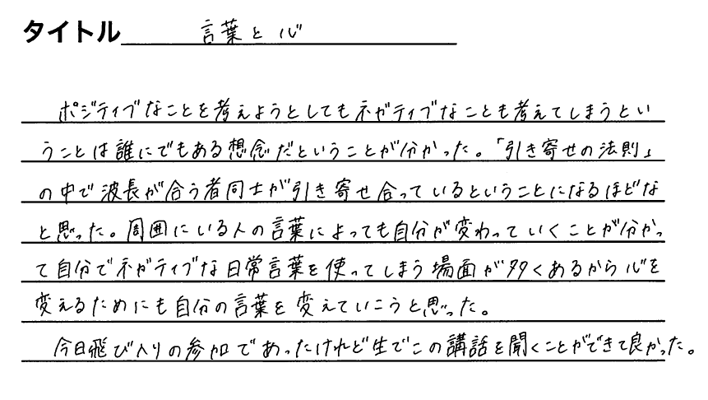 タイトル 言葉と心
ポジティブなことを考えようとしてもネガティブなことも考えてしまうとい
うことは誰にでもある想念だということが分かった。「引き寄せの法則」
の中で波長が合う者同士が引き寄せ合っているということになるほどな
と思った。周囲にいる人の言葉によっても自分が変わっていくことが分かっ
て自分でネガティブな日常言葉を使ってしまう場面が多くあるから心を
変えるためにも自分の言葉を変えていこうと思った。
今日飛び入りの参加であったけれど生でこの講話を聞くことができて良かった。